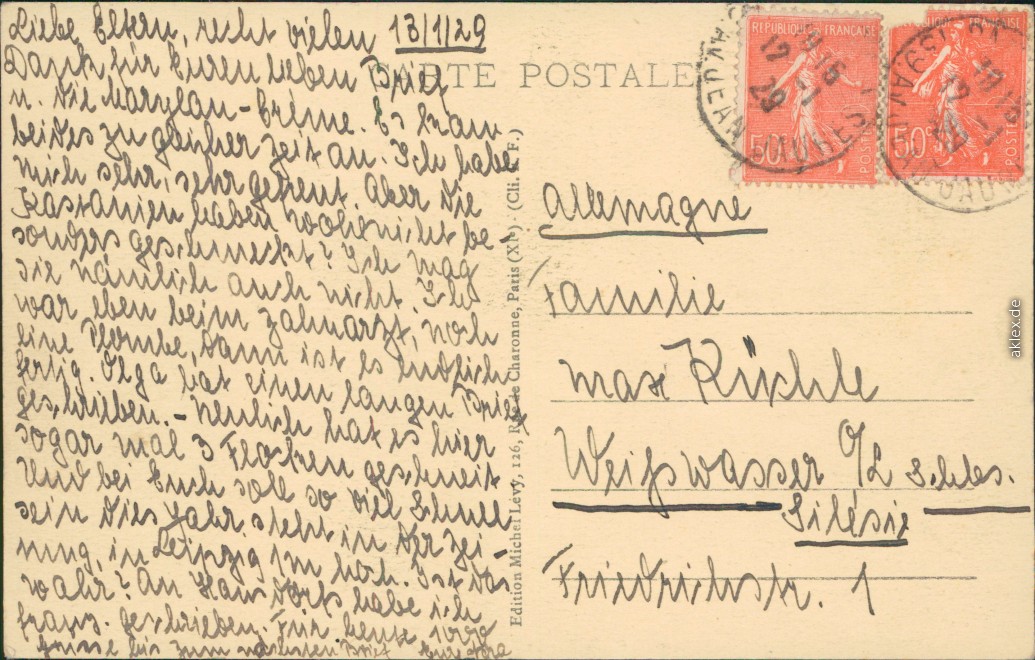 Liebe Eltern, recht vielen 13/1/29
Dank für Euren lieben Brief
u. die Marylan-Crème. Es kam
beides zu gleicher Zeit an. Ich habe
mich sehr, sehr gefreut. Aber die
Kastanien haben wohl nicht be-
sonders geschmeckt? Ich mag
sie nämlich auch nicht. Ich
war eben beim Zahnarzt, noch
eine Plombe, dann ist es endlich
fertig. Olga hat einen langen Brief
geschrieben. - Neulich hat es hier
sogar mal 3 Flocken geschneit
Und bei Euch soll so viel Schnee
sein dies Jahr steht in der Zei-
tung, in Leipzig 1m hoch. Ist das
wahr? An Hans Dorfs habe ich
franz. geschrieben. Für heute 1000
Grüsse bis zum nächsten Brief Eure
CARTE POSTALE
Edition Michel Lévy, 126, Rue de Charonne, Paris (XIe). (Cli. F.)
RÉPUBLIQUE FRANÇAISE
50c POSTES
RÉPUBLIQUE FRANÇAISE
50c POSTES
Allemagne
Familie
Max Küchle
Weißwasser O/L Schles.
Silésie
Friedrichstr. 1
aklex.de